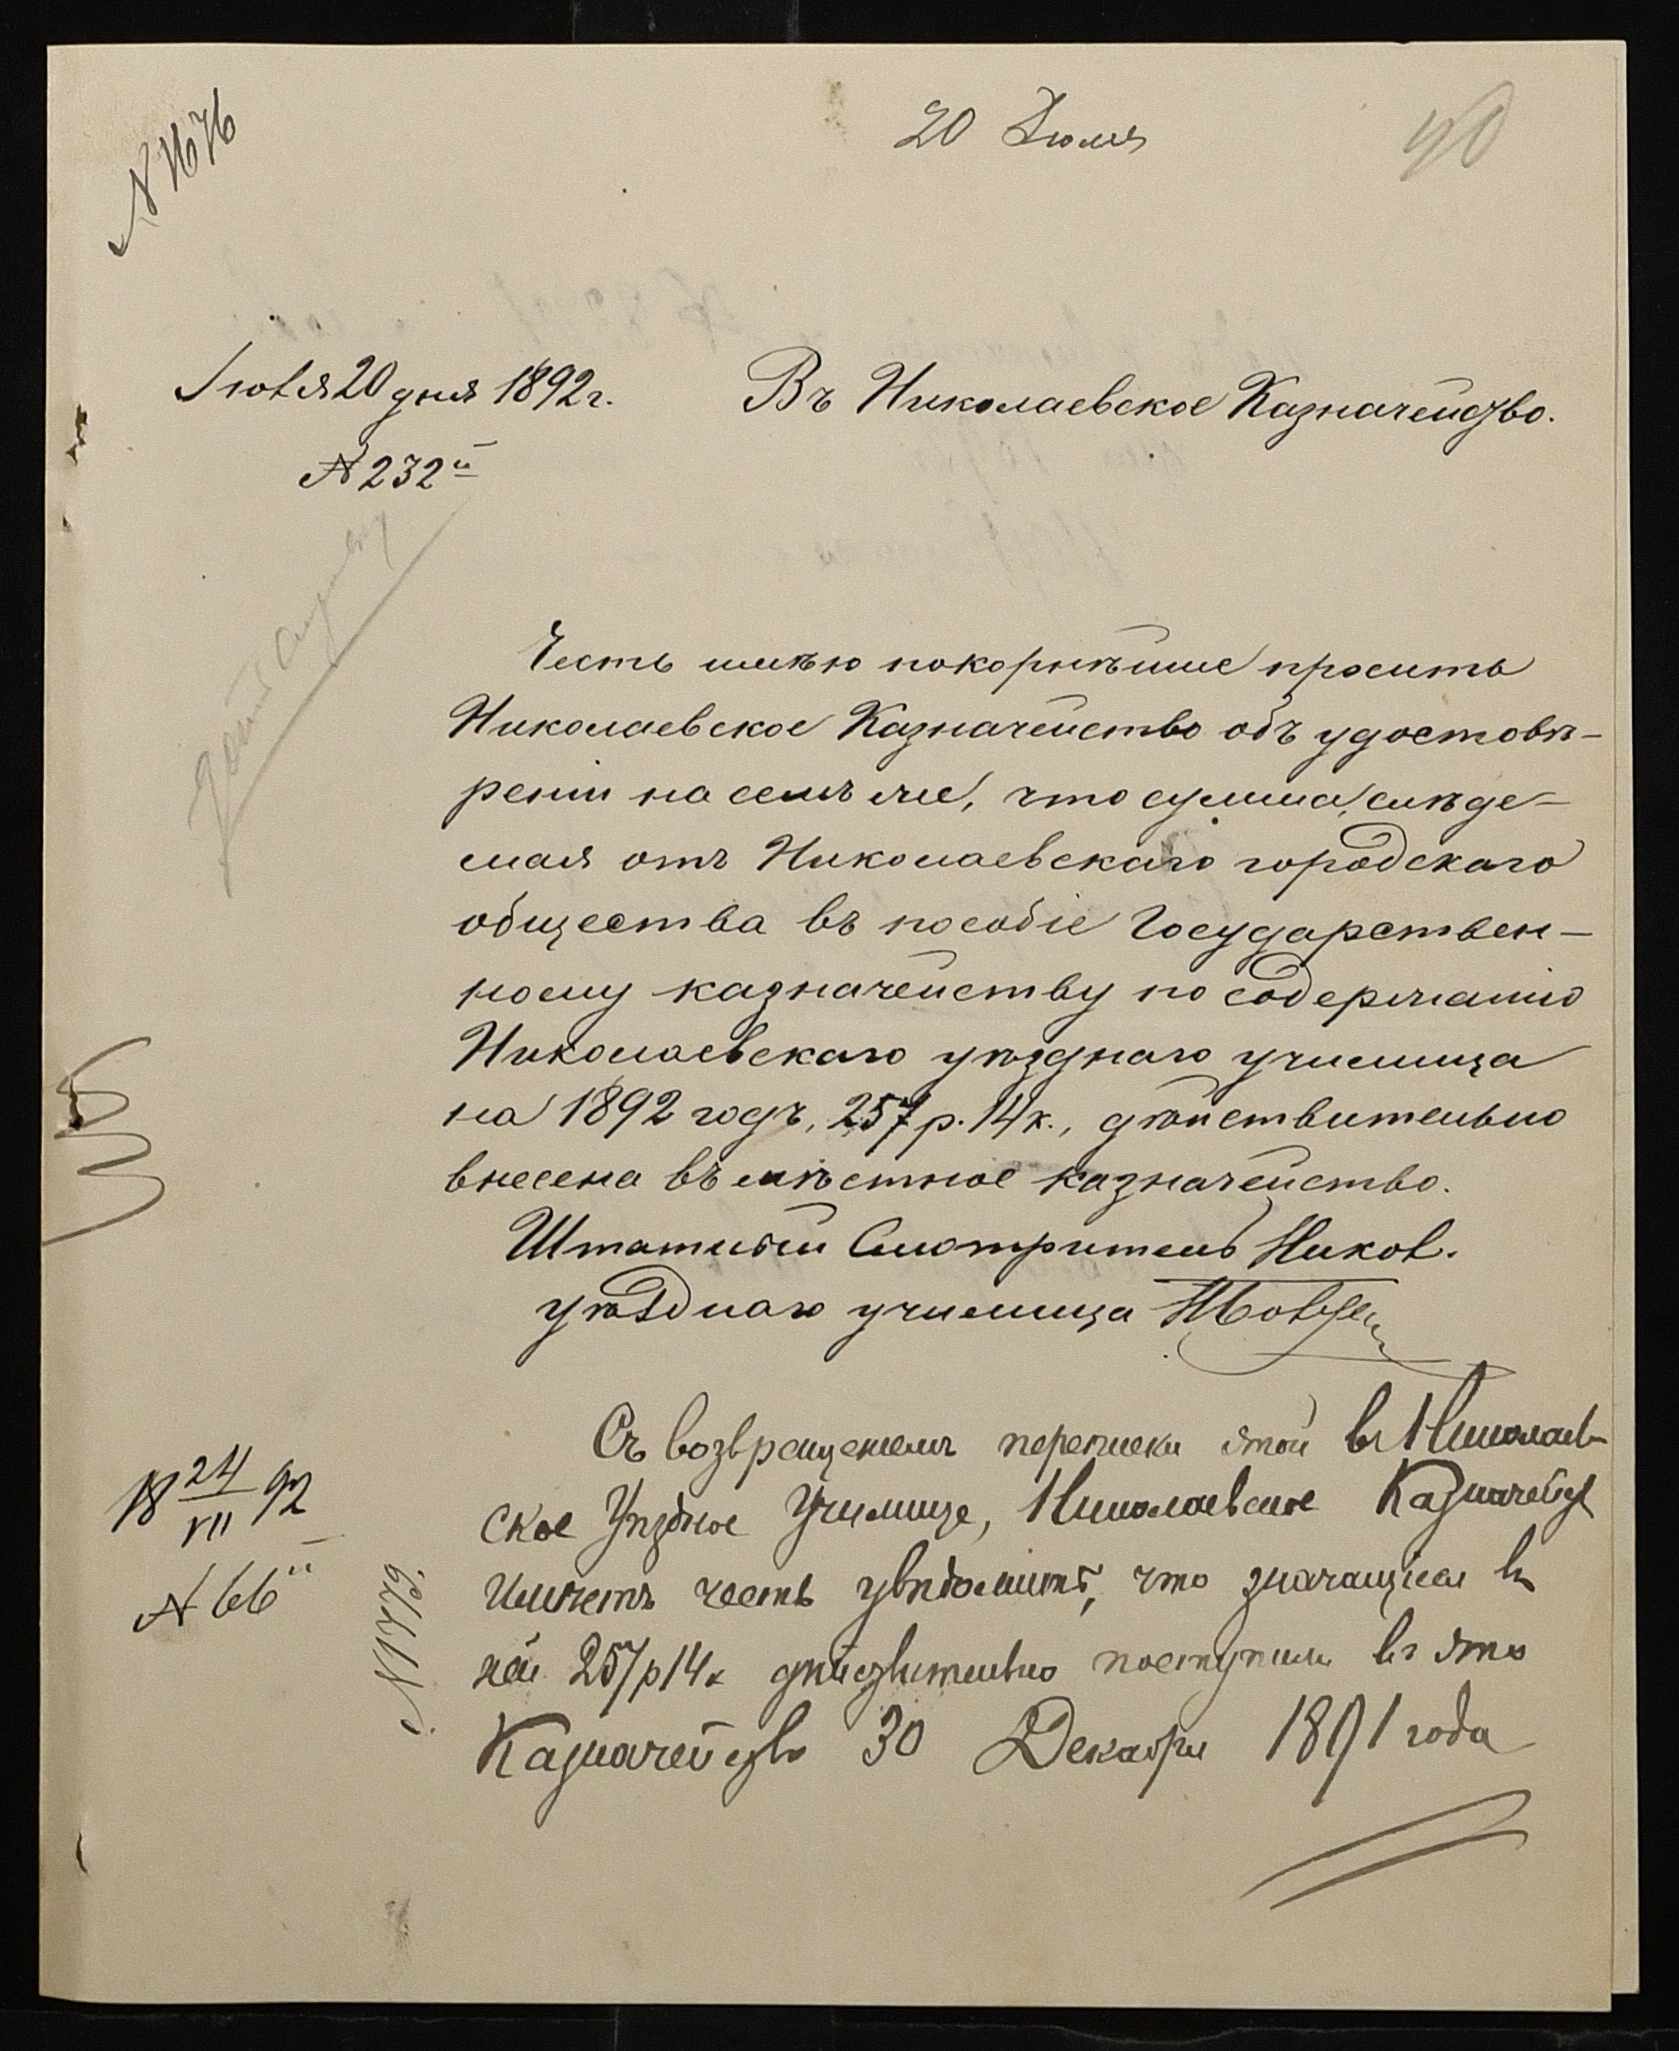 № 1676
20 Июля
40
Іюля 20 дня 1892 г.
Въ Николаевское Казначейство.
№ 232й
Честь имѣю покорнѣйше просить
Николаевское Казначейство объ удостовѣ-
реніи на семъ же, что сумма, слѣде-
мая отъ Николаевскаго городского
общества въ пособіе Государствен-
ному казначейству по содержанію
Николаевскаго уѣзднаго училища
на 1892 годъ, 257 р. 14 к., дѣйствительно
внесена въ мѣстное казначейство.
Штатный Смотритель Никол.
уѣзднаго училища
Съ возвращеніемъ переписки этой въ Николаев-
ское Уѣздное Училище, Николаевское Казначейст
имѣетъ честь увѣдомить, что значащіеся въ
ней 257 р 14 к дѣйствительно поступили въ это
Казначейство 30 Декабря 1891 года
18 24/VII 92
№ 66й
№ 1779.